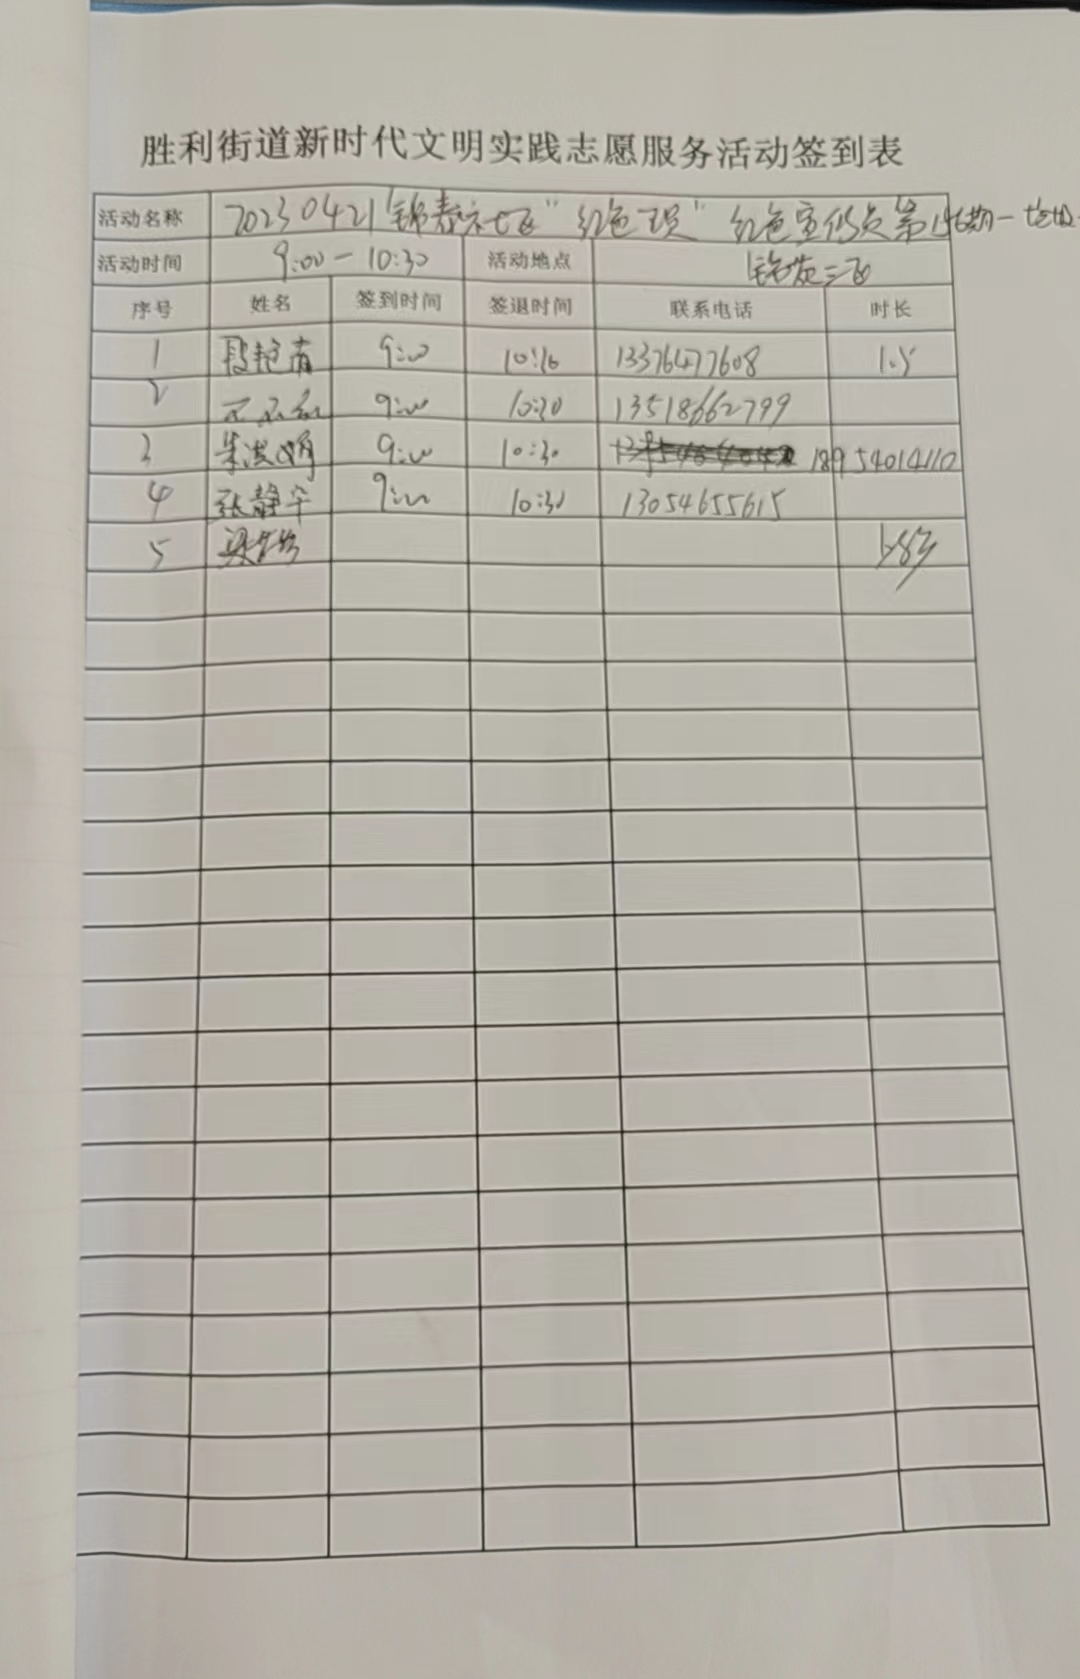 胜利街道新时代文明实践志愿服务活动签到表
活动名称 20230421锦春社区“红色 ” 红色宣传员第 期一
活动时间 9:00-10:30 活动地点
序号 姓名 签到时间 签退时间 联系电话 时长
1 段艳青 9:00 10:30 13376477608 1.5
2 9:00 10:30 13518662799
3 9:00 10:30 18954014110
4 张静 9:00 10:30 13054655615
5 梁